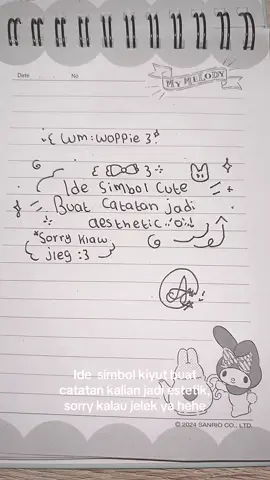 Date No
MY MELODY
{ wm : woppie }
Ide Simbol Cute
Buat Catatan jadi
aesthetic
*Sorry klaw
jleg :3
Ide simbol kiyut buat
catatan kalian jadi estetik,
sorry kalau jelek ya hehe
© 2024 SANRIO CO., LTD.